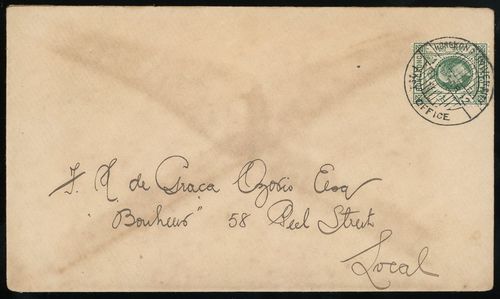 HONGKONG
OFFICE
J. M. de Graça Ozorio Esq
"Bonheur" 58 Peel Street
Local